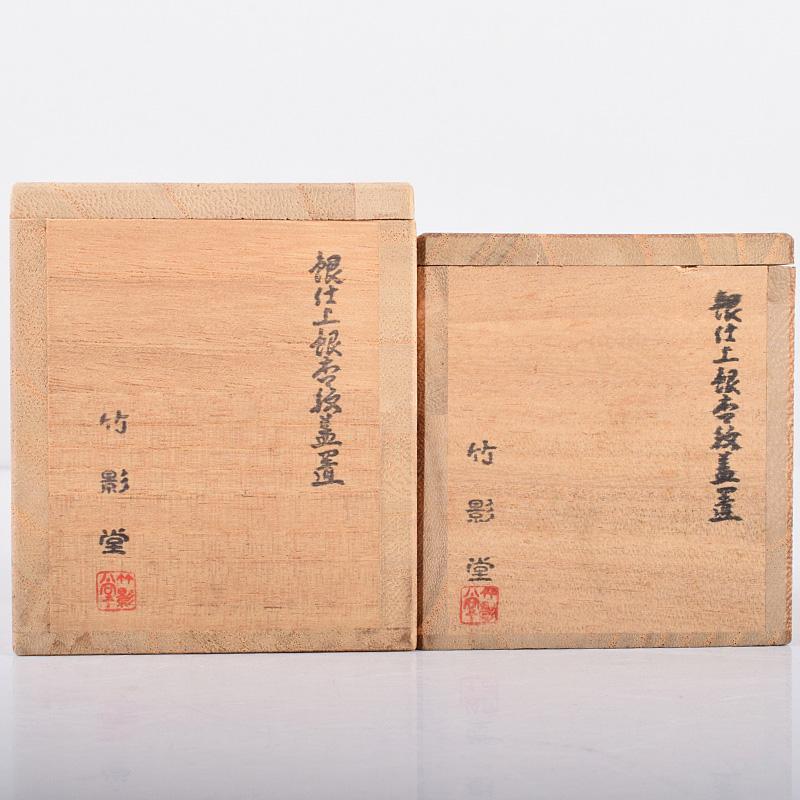 銀仕上銀杏紋蓋置
竹影堂
竹影堂
銀仕上銀杏紋蓋置
竹影堂
竹影堂